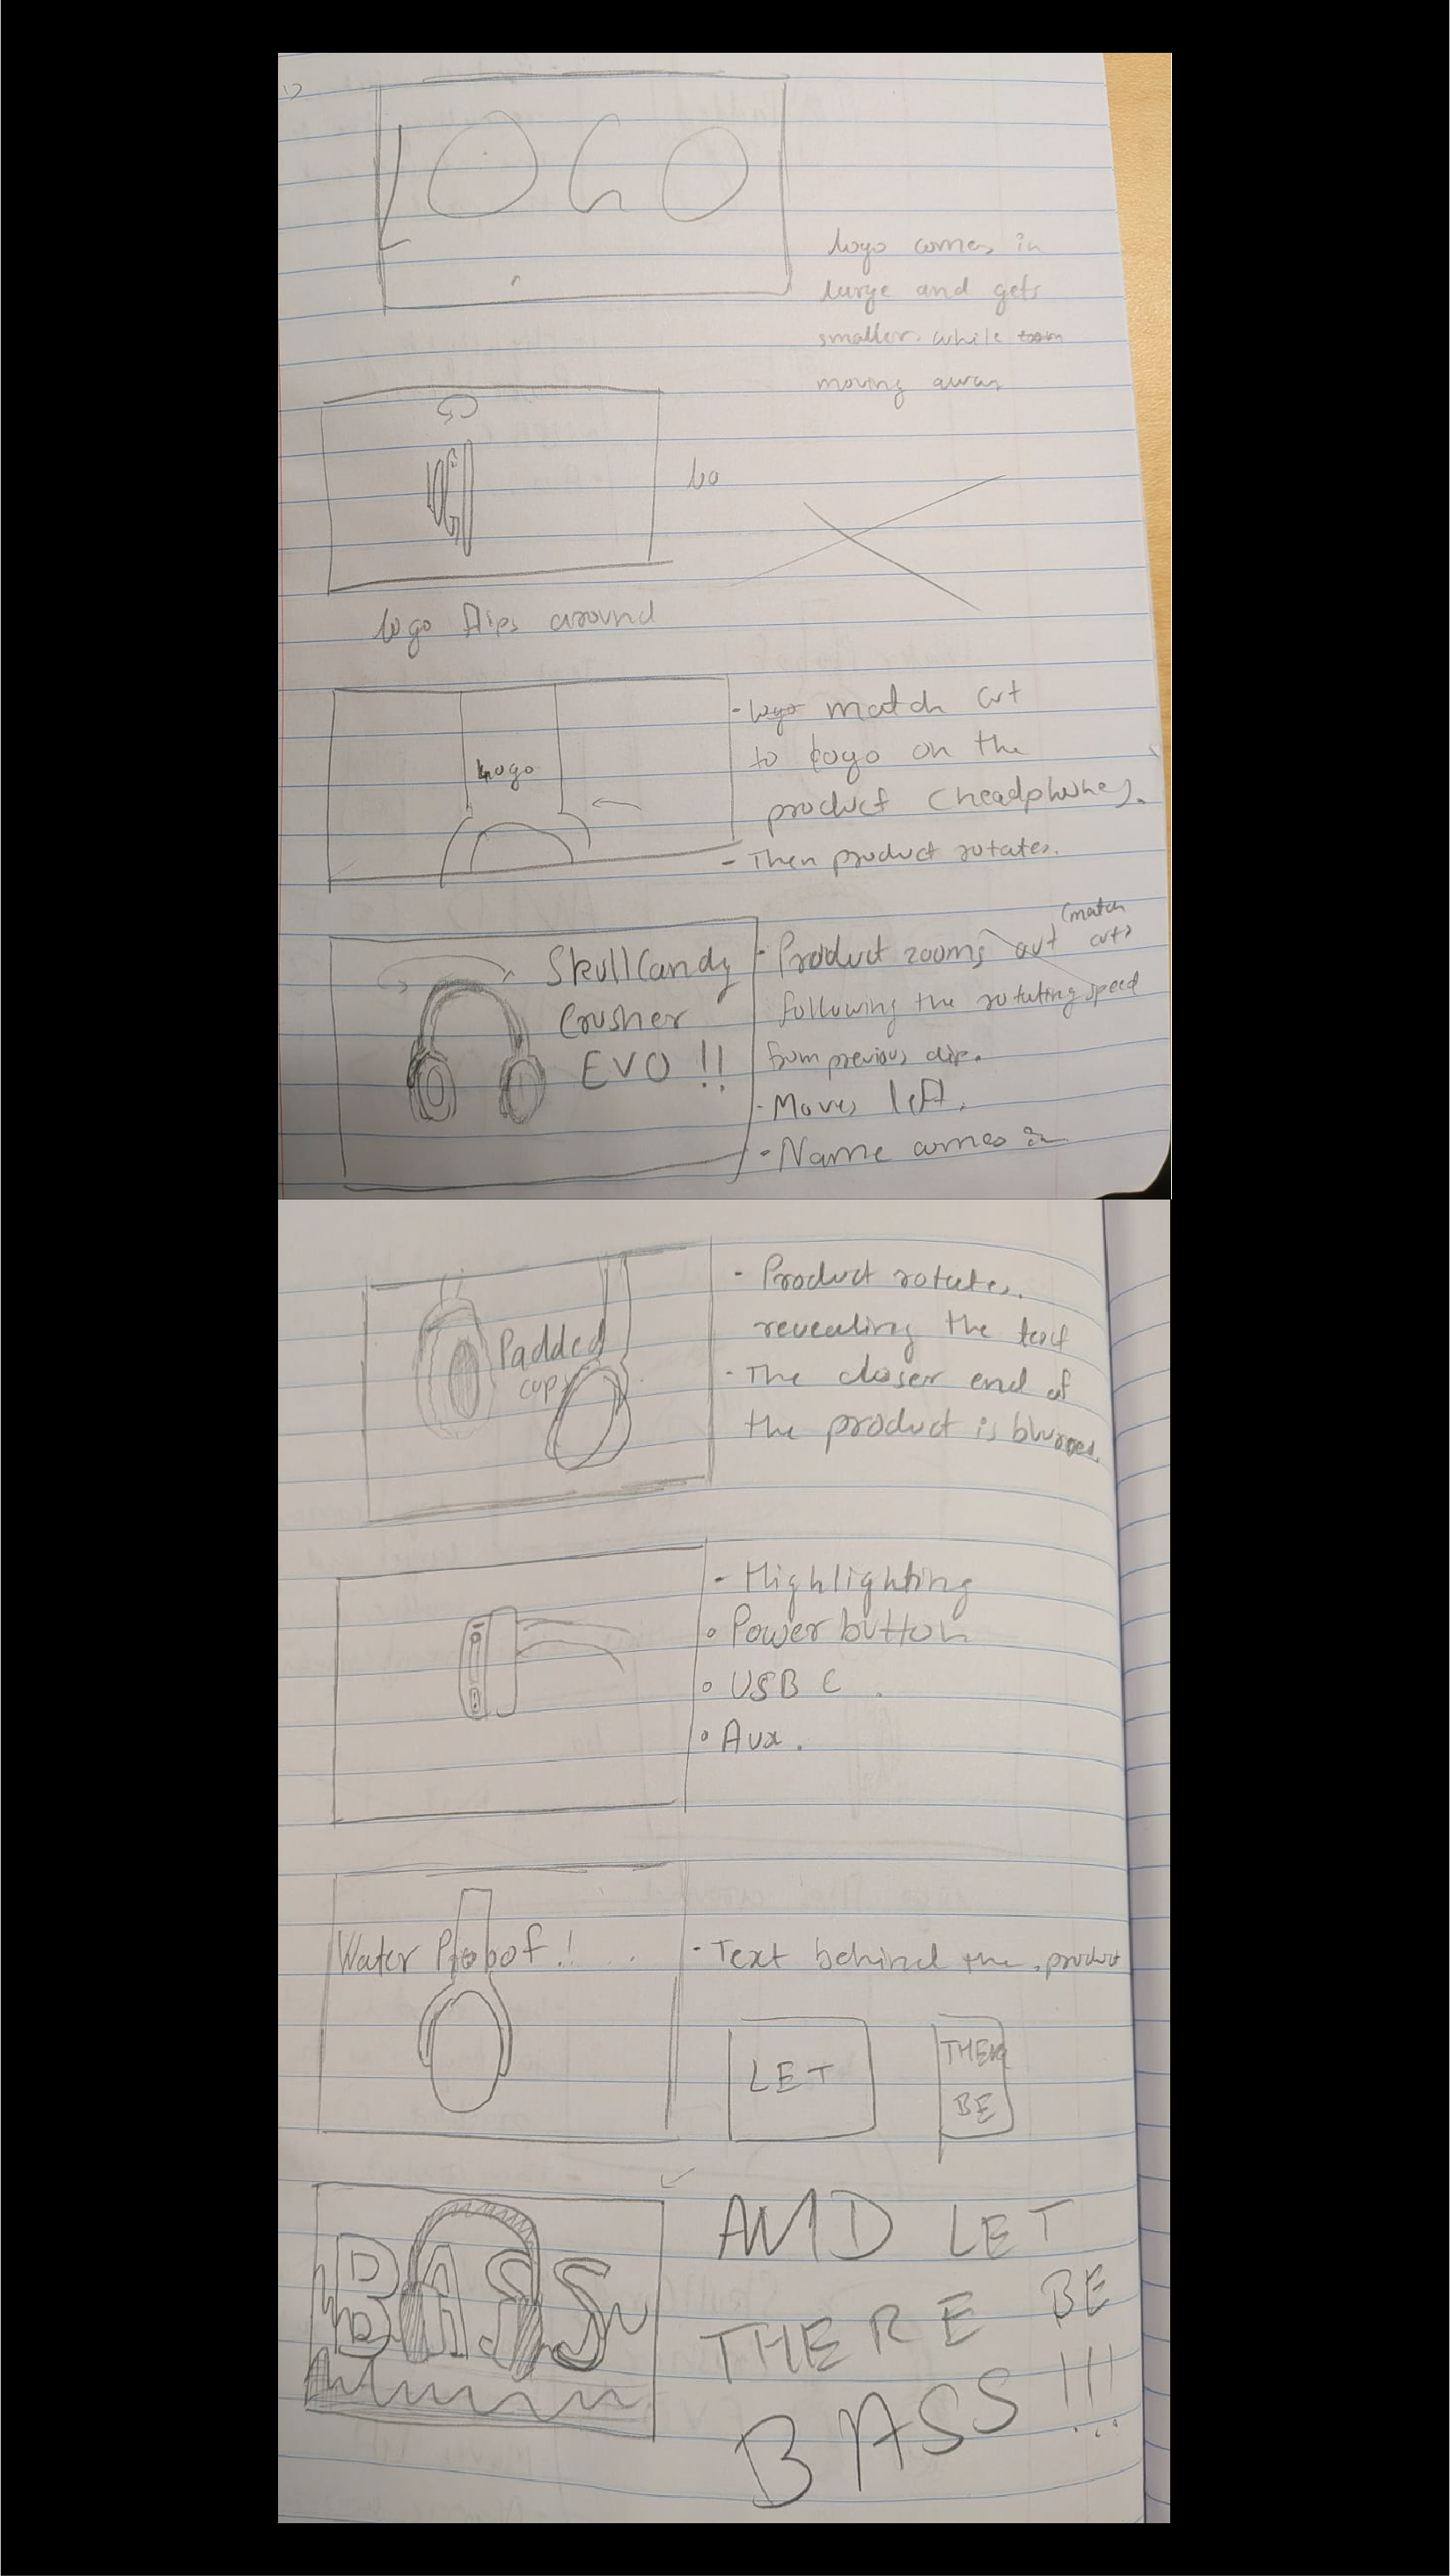 1)
LOGO
logo comes in
large and gets
smaller while
moving away
LOGO
lo
logo flips around
Logo
- logo match cut
to logo on the
product (headphones).
- Then product rotates.
SkullCandy
Crusher
EVO !!
- Product zooms out (match cut)
following the rotating speed
from previous clip.
- Moves left.
- Name comes in
Padded
cups
- Product rotates.
revealing the text
- The closer end of
the product is blurred.
- Highlighting
o Power button
o USB C
o Aux.
Water Proof!
- Text behind the product
LET
THERE
BE
BASS
AND LET
THERE BE
BASS !!!